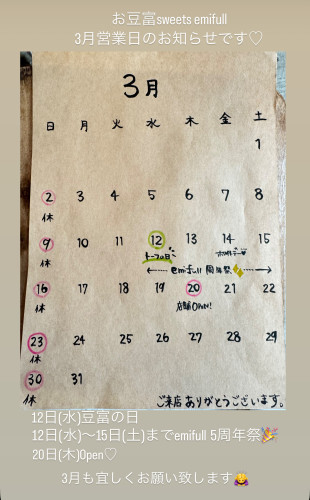 お豆富sweets emifull
3月営業日のお知らせです♡
3月
日 月 火 水 木 金 土
1
2 3 4 5 6 7 8
休
9 10 11 12 13 14 15
休 トーフの日 ホワイトデー♥
emifull 周年祭
16 17 18 19 20 21 22
休 店舗OPEN!
23 24 25 26 27 28 29
休
30 31
休
ご来店ありがとうございます。
12日(水)豆富の日
12日(水)〜15日(土)までemifull 5周年祭🎉
20日(木)Open♡
3月も宜しくお願い致します🙇